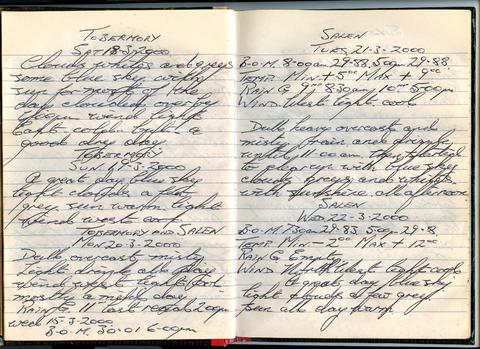 TOBERMORY
SAT 18-3-2000
Clouds whites and greys
some blue sky with
sun for most of the
day clouded over by
wind light
a
good dry day
TOBERMORY
SUN. 19-3-2000
A great day blue sky
light clouds a few
grey sun warm light
wind west cool
TOBERMORY AND SALEN
MON 20-3-2000
Dull, overcast misty
light drizzle all day
wind west light cool
mostly a mild day
RAIN G. 11 last read 2.00pm
wed 15-3-2000
B.O.M. 30.01 6-00pm
SALEN
TUES 21-3-2000
B.O.M. 8-00am 29.88, 5.00pm 29.88
TEMP MIN +5°C MAX + 9°C
RAIN G 9mm 8.30am 10mm 5.00pm
WIND West light cool
Dull heavy overcast and
misty rain and drizzle
until 11.00am then started
to clear up with blue sky
clouds greys and whites
with sunshine all afternoon
SALEN
WED 22-3-2000
B.O.M. 7.30am 29.83 5.00pm 29.8
TEMP MIN - 2°C MAX + 12°C
RAIN G Empty
WIND North West light cool
a great day blue sky
light clouds a few grey
sun all day warm